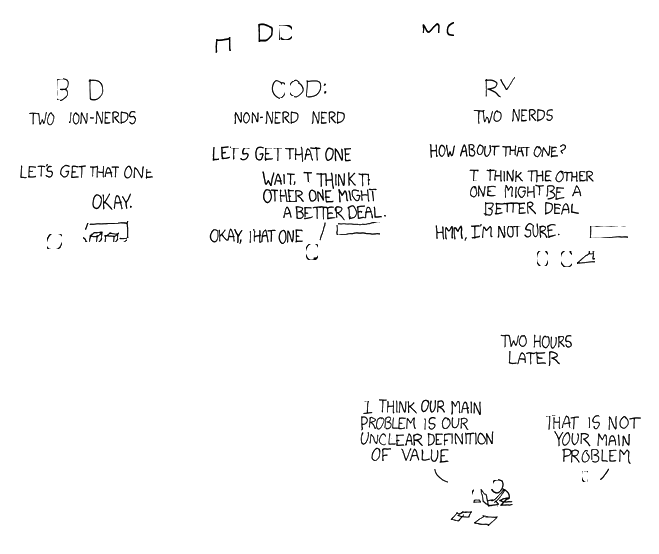 TWO
NON-NERD NERD
TWO NERDS
LET'S GET THAT ONE
OKAY.
LET'S GET THAT ONE
WAIT, I THINK
OTHER ONE MIGHT
A BETTER DEAL.
OKAY, THAT ONE
HOW ABOUT THAT ONE?
I THINK THE OTHER
ONE MIGHT BE A
BETTER DEAL
HMM, I'M NOT SURE.
TWO HOURS
LATER
I THINK OUR MAIN
PROBLEM IS OUR
UNCLEAR DEFINITION
OF VALUE
THAT IS NOT
YOUR MAIN
PROBLEM